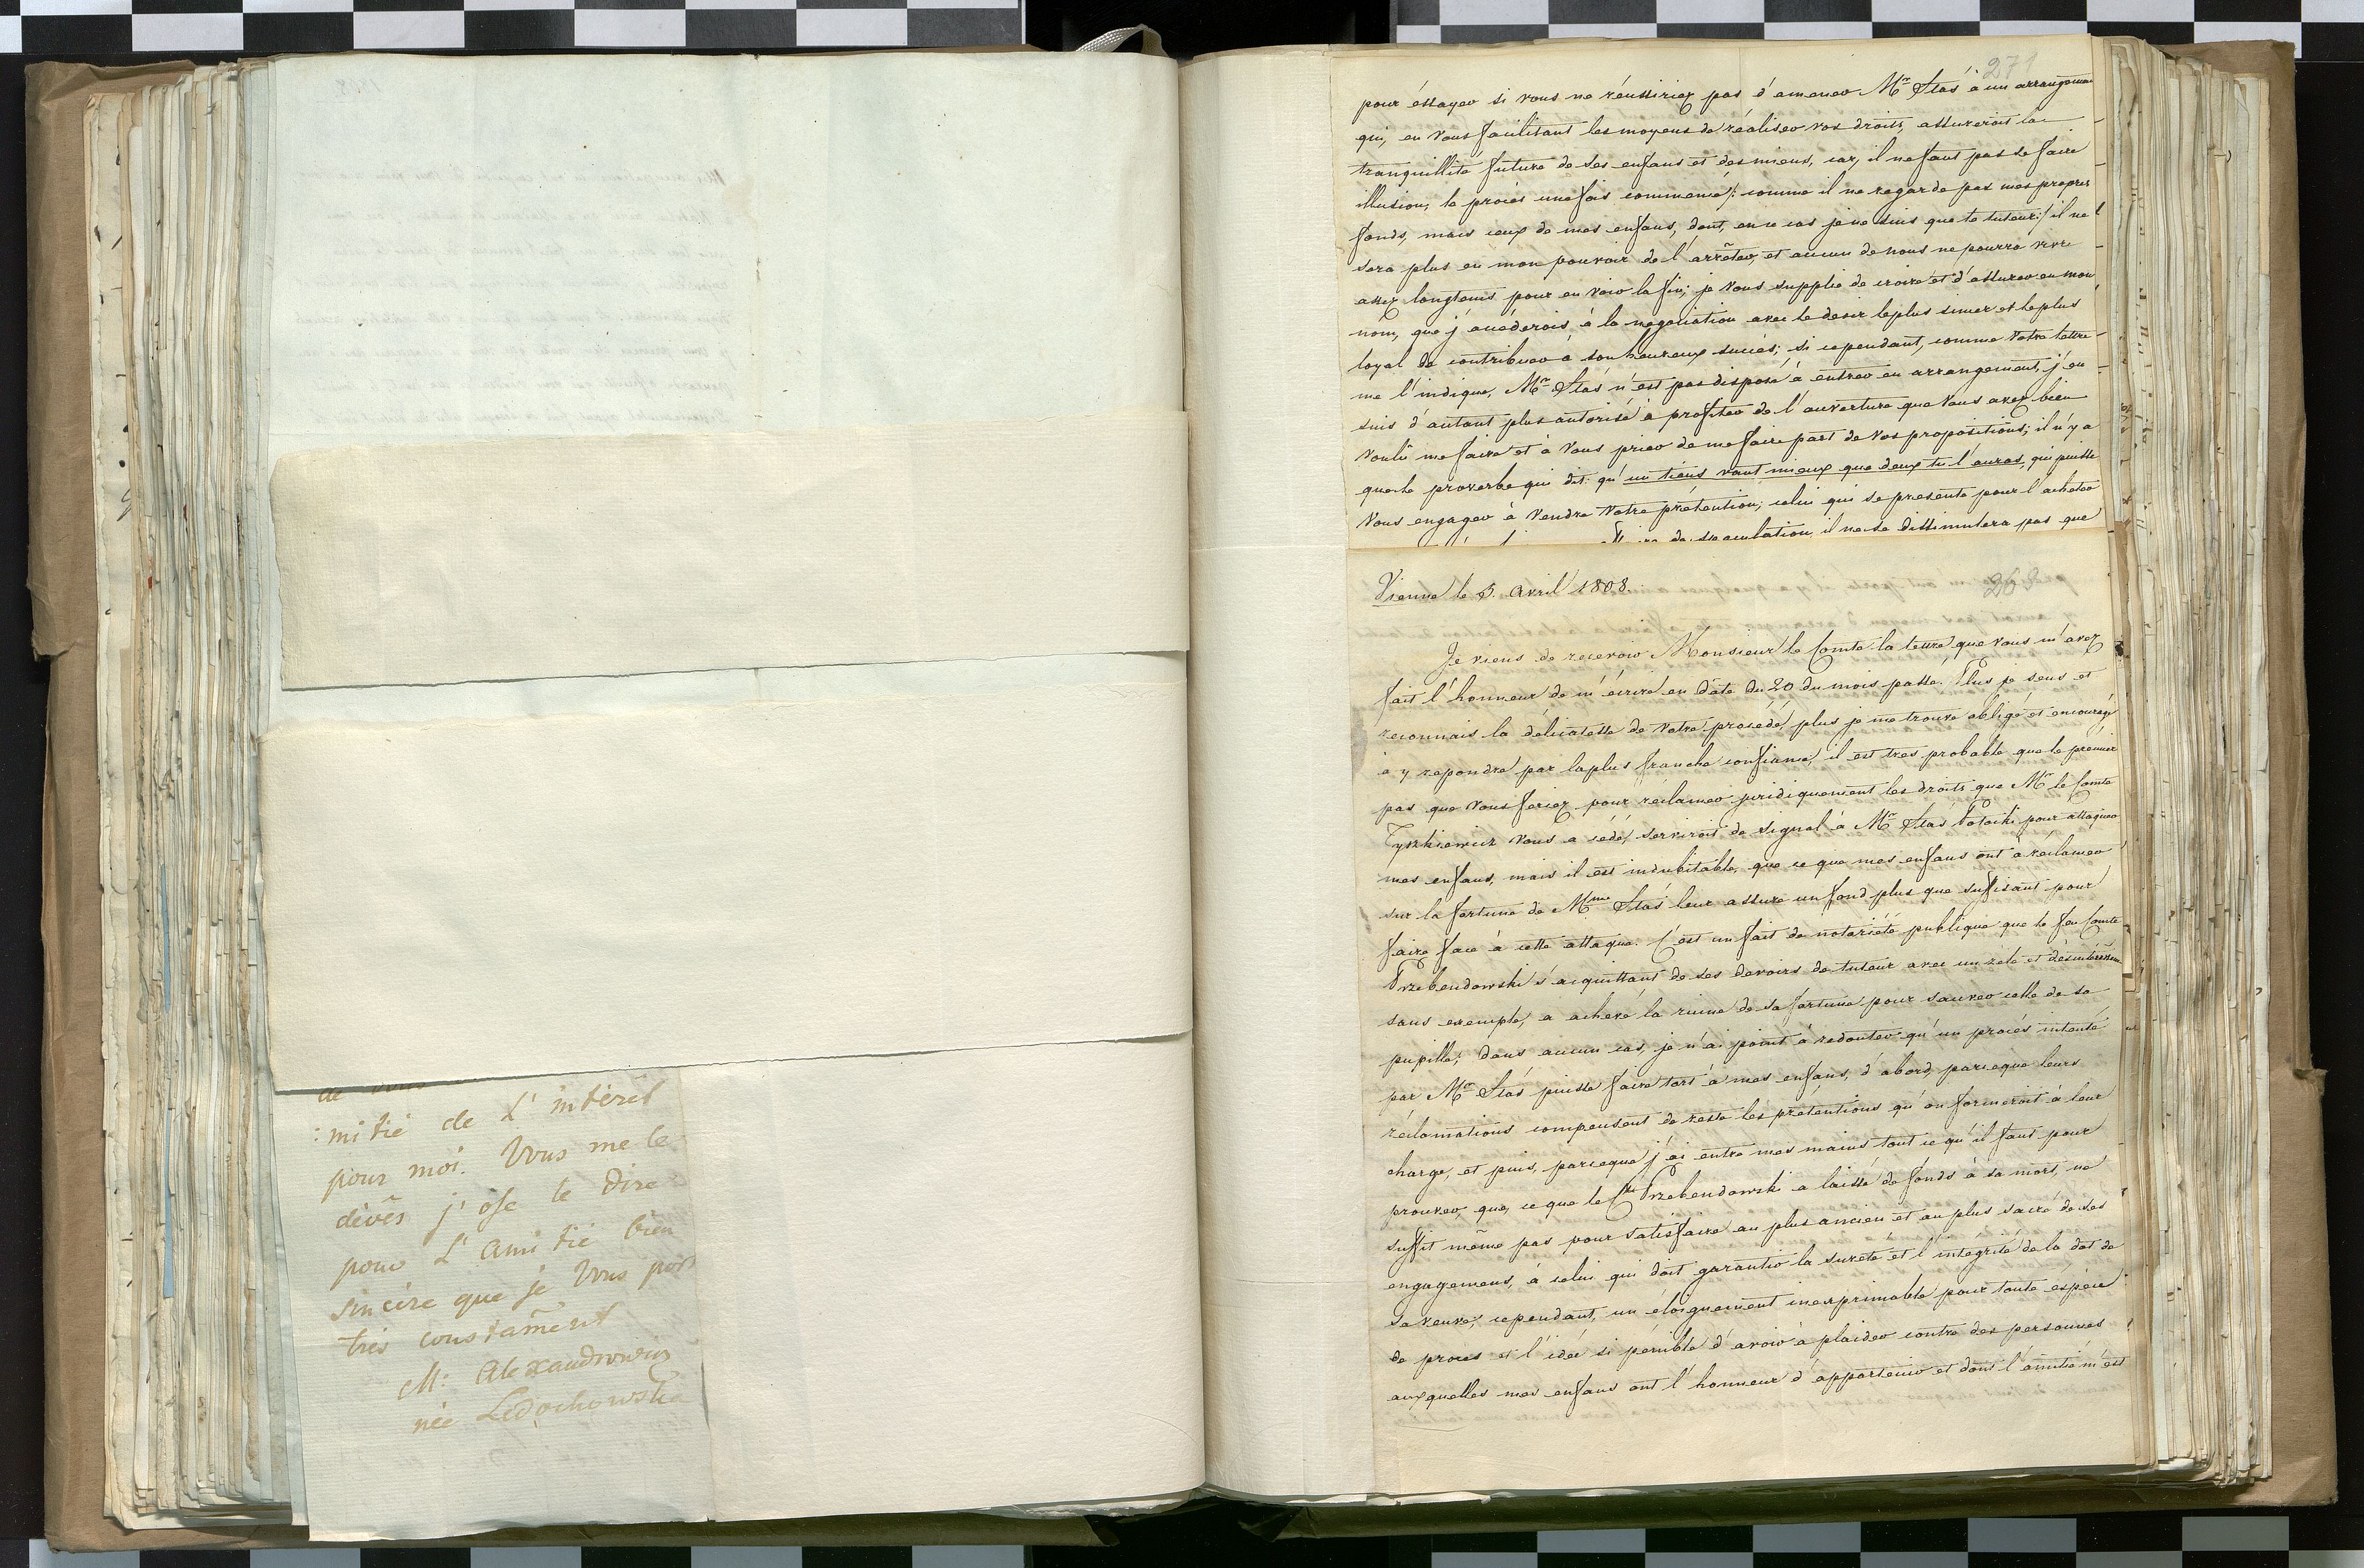 de
: mitié de L'intèret
pour moi. Vous me le
dèvès j'ose le dire
pour L'Amitié bien
sincère que je Vous port
très constam̃ent
M: Alexandrowicz
née Ledòchowska
271
pour éssayer si vous ne réussiriez pas d'amener Mr Stas à un arrangemen
qui, en Vous facilitant les moyens de réaliser vos droits, assureroit la
tranquillité future de ses enfans et des miens, car, il ne faut pas se faire
illusion, le procès une fois commencé /: comme il ne regarde pas mes propres
fonds, mais ceux de mes enfans, dont, en ce cas je ne suis que le tuteur :/ il ne
sera plus en mon pouvoir de l'arrêter, et aucun de nous ne pourra vivre
assez longtems pour en voir la fin; je Vous supplie de croire et d'assurer en mon
nom, que j'accéderois à la negociation avec le desir le plus sincer et le plus
loyal de contribuer à son heureux succès; si cependant, comme Votre lettre
me l'indique, Mr Stas n'est pas disposé à entrer en arrangement, j'en
suis d'autant plus autorisé à profiter de l'ouverture que Vous avez bien
Voulû me faire et à Vous prier de me faire part de Vos propositions; il n'y a
que le proverbe qui dit: qu'un tiens vaut mieux que deux tu l'auras, qui puisse
Vous engager à Vendre Votre prétention; celui qui se presente pour l'acheter
de speculation, il ne se dissimulera pas que
268
Vienne le 5. Avril 1808.
Je viens de recevoir Monsieur le Comte la lettre que Vous m'avez
fait l'honneur de m'écrire en date du 20 du mois passé. Plus je sens et
reconnais la délicatesse de Votre procédé, plus je me trouve obligé et encouragé
à y repondre par la plus franche confiance; il est tres probable que le prémier
pas que Vous feriez pour reclamer juridiquement les droits que Mr le Comte
Tyszkiewicz Vous a cédé, serviroit de signal à Mr Stas Potocki pour attaquer
mes enfans, mais il est indubitable, que ce que mes enfans ont à réclamer
sur la fortune de Mme Stas leur assure un fond plus que suffisant pour
faire face à cette attaque. C'est un fait de notoriété publique que le feu Comte
Przebendowski s'acquittant de ses devoirs de tuteur avec un zèle et désintéressem
sans exemple, a achevé la ruine de sa fortune pour sauver celle de sa
pupille; dans aucun cas, je n'ai point à redouter qu'un procès intenté
par Mr Stas puisse faire tort à mes enfans, d'abord, parceque leurs
réclamations compensent de reste les prétentions qu'on formeroit à leur
charge, et puis, parceque j'ai entre mes mains tout ce qu'il faut pour
prouver, que, ce que le Cte Przebendowski a laissé de fonds à sa mort, ne
suffit même pas pour satisfaire au plus ancien et au plus sacré de ses
engagemens, à celui qui doit garantir la sureté et l'intégrité de la dot de
sa veuve; cependant, un éloignement inexprimable pour toute espéce
de procès et l'idée si pénible d'avoir à plaider contre des personnes
auxquelles mes enfans ont l'honneur d'appartenir et dont l'amitié m'est